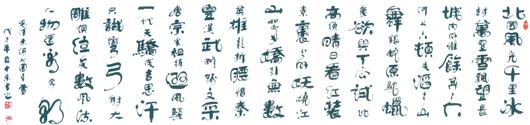 北國風光千里冰
封萬里雪飄望長
城內外惟餘莽莽大
河上下頓失滔滔山
舞銀蛇原馳蠟
象欲與天公試比
高須晴日看紅裝
素裹分外妖嬈江
山如此多嬌引無數
英雄競折腰惜秦
皇漢武略輸文采
唐宗宋祖稍遜風騷
一代天驕成吉思汗
只識彎弓射大
雕俱往矣數風流
人物還看今朝
毛澤東沁園春雪
戊子年